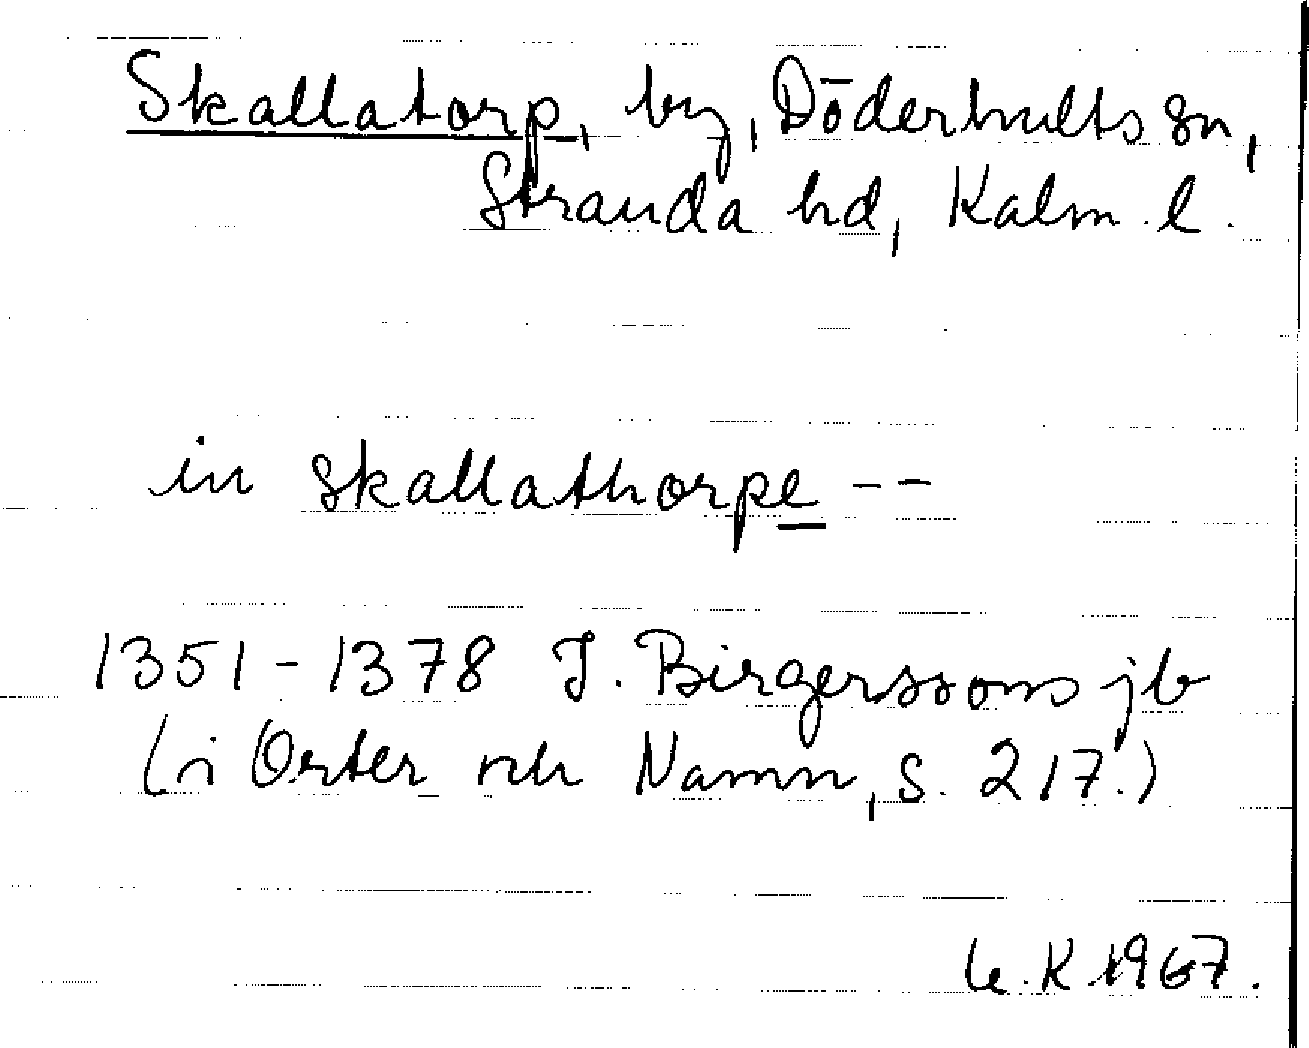 Skallatorp, by, Döderhults sn,
Stranda hd, Kalm. l.
in skallathorpe --
1351-1378 J. Birgerssons jb
(i Orter och Namn, s. 217.)
K 1967.